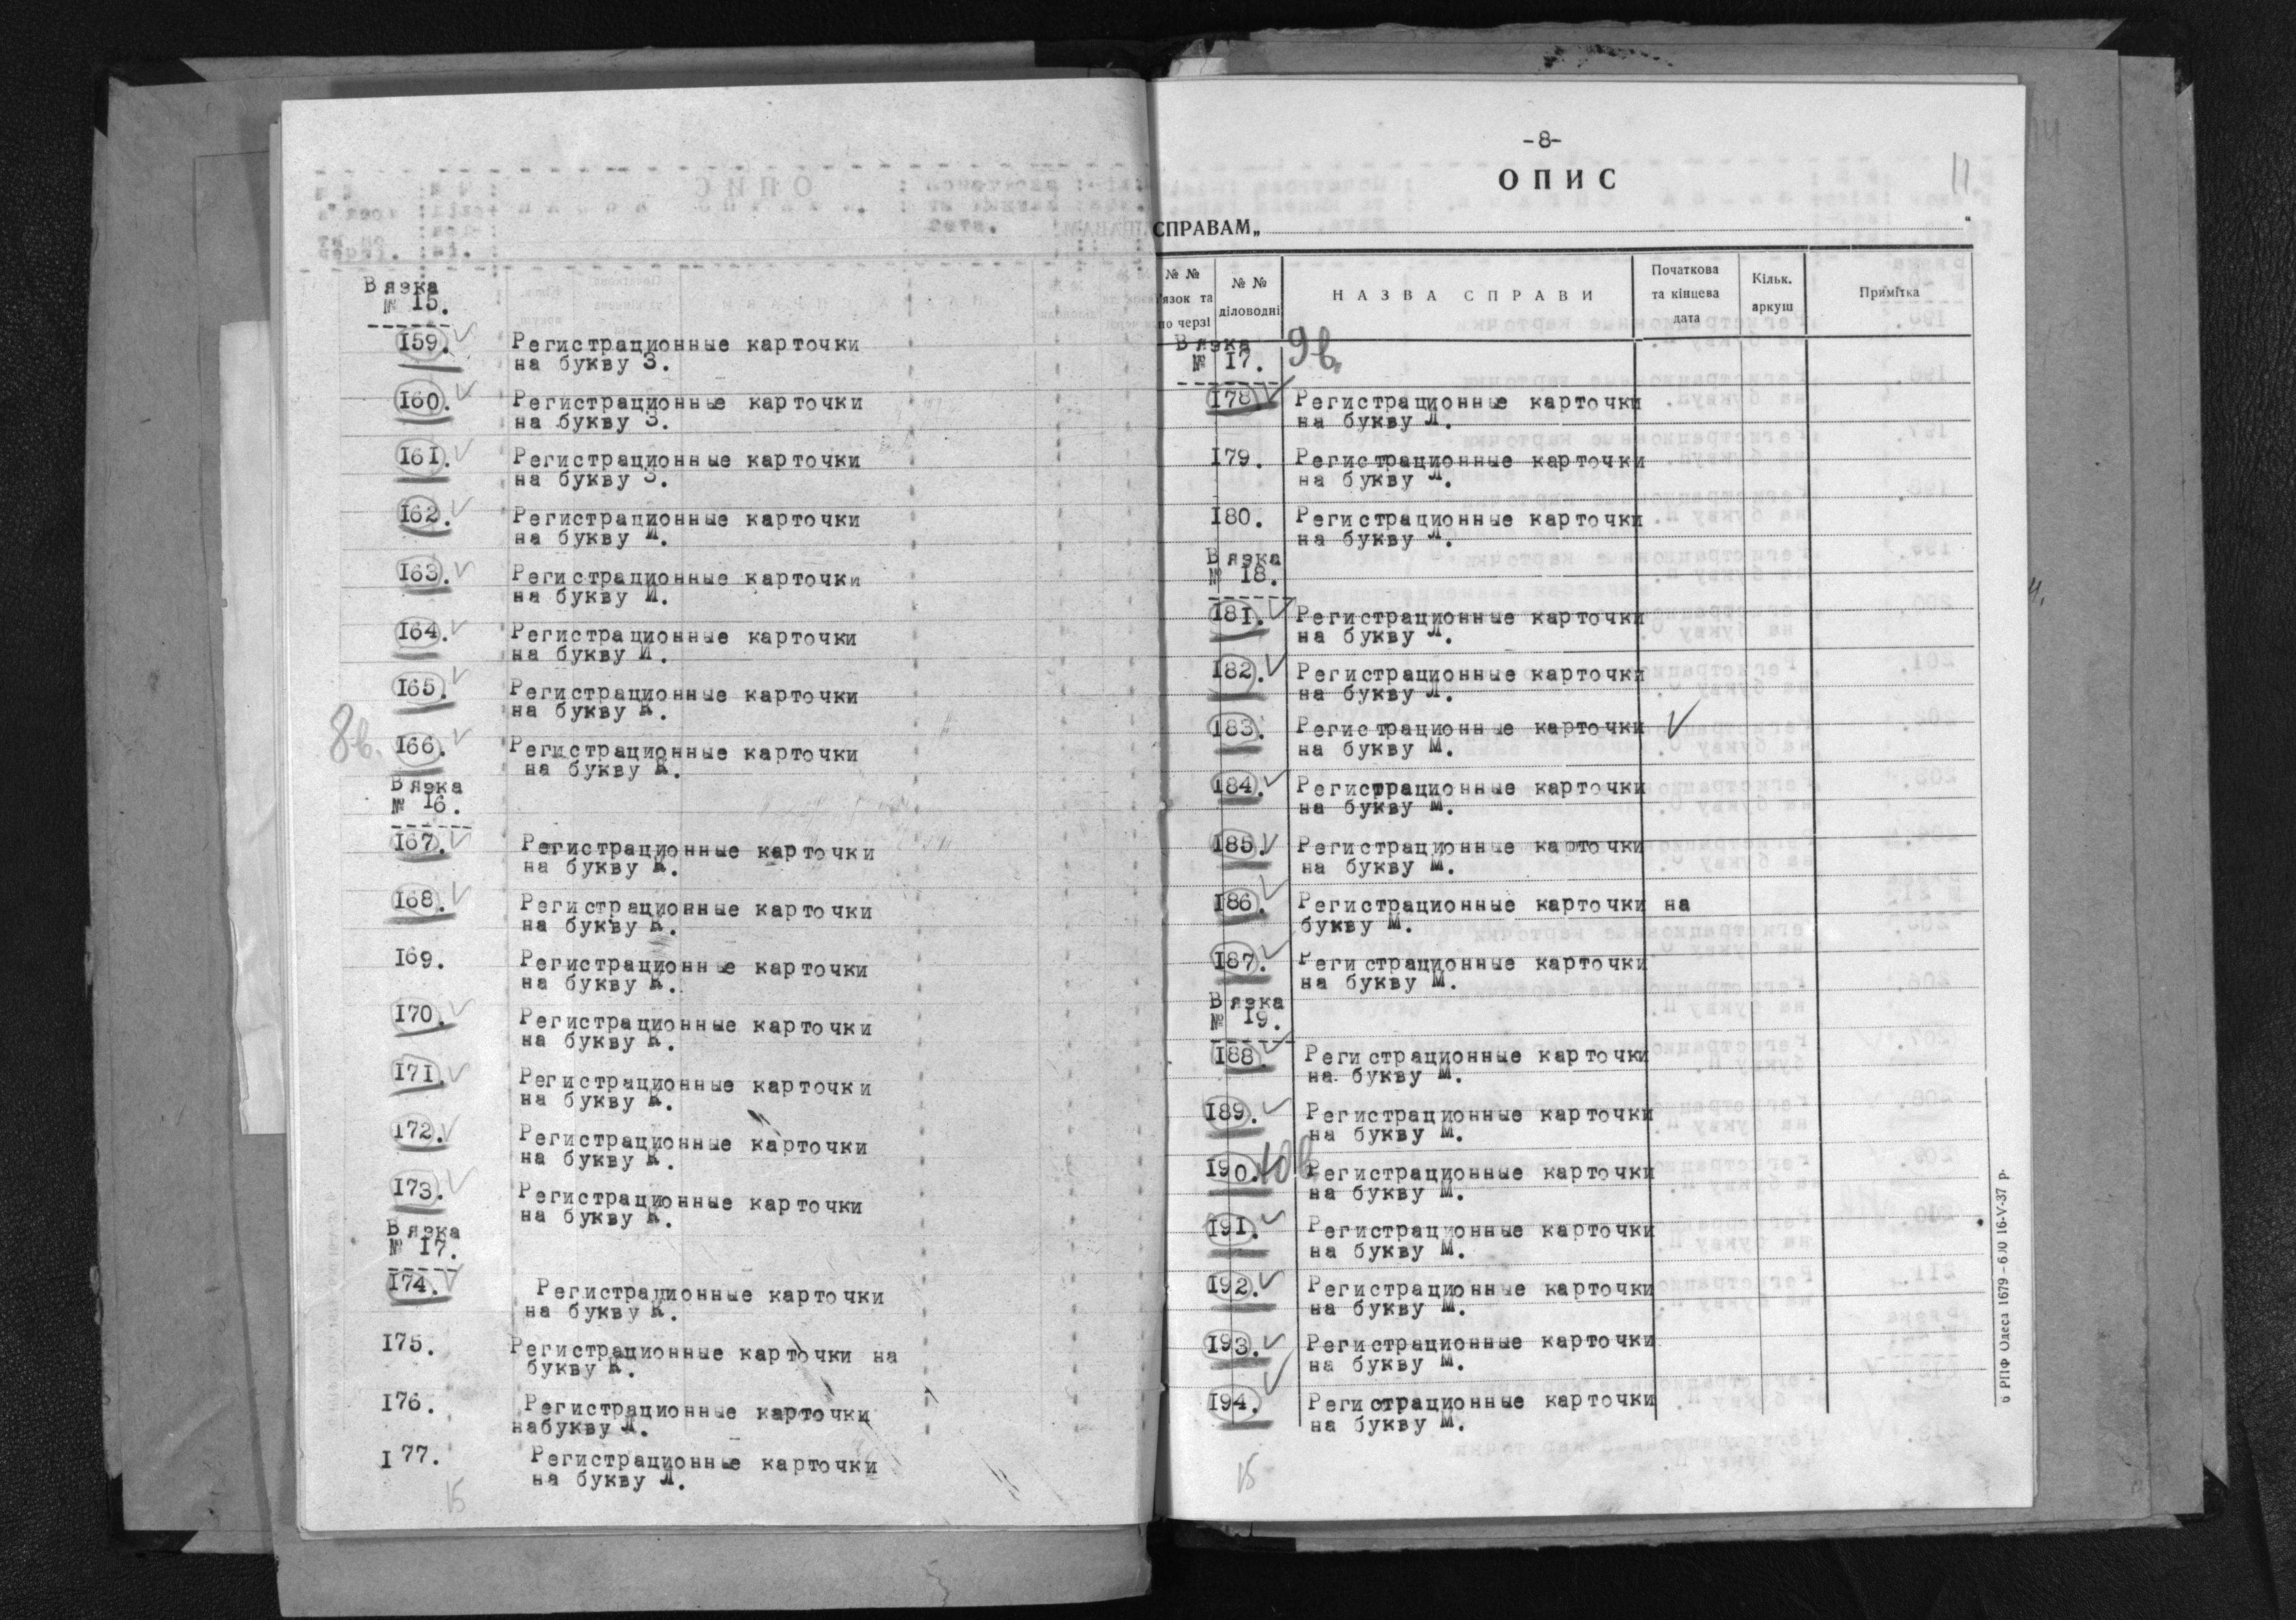 Вязка
№ 15.
159. Регистрационные карточки
на букву З.
160. Регистрационные карточки
на букву З.
161. Регистрационные карточки
на букву З.
162. Регистрационные карточки
на букву И.
163. Регистрационные карточки
на букву И.
164. Регистрационные карточки
на букву И.
165. Регистрационные карточки
на букву К.
8в. 166. Регистрационные карточки
на букву К.
Вязка
№ 16.
167. Регистрационные карточки
на букву К.
168. Регистрационные карточки
на букву К.
169. Регистрационные карточки
на букву К.
170. Регистрационные карточки
на букву К.
171. Регистрационные карточки
на букву К.
172. Регистрационные карточки
на букву К.
173. Регистрационные карточки
на букву К.
Вязка
№ 17.
174. Регистрационные карточки
на букву К.
175. Регистрационные карточки на
букву К.
176. Регистрационные карточки
набукву Л.
177. Регистрационные карточки
на букву Л.
15
-8-
ОПИС
11.
СПРАВАМ „ “
№ №
язок та
по черзі
№ №
діловодні
НАЗВА СПРАВИ
Початкова
та кінцева
дата
Кільк.
аркуш
Примітка
Вязка
№ 17. 9в.
178. Регистрационные карточки
на букву Л.
179. Регистрационные карточки
на букву Л.
180. Регистрационные карточки
на букву Л.
Вязка
№ 18.
181. Регистрационные карточки
на букву Л.
182. Регистрационные карточки
на букву Л.
183. Регистрационные карточки
на букву М.
184. Регистрационные карточки
на букву М.
185. Регистрационные карточки
на букву М.
186. Регистрационные карточки на
букву М.
187. Регистрационные карточки
на букву М.
Вязка
№ 19.
188. Регистрационные карточки
на букву М.
189. Регистрационные карточки
на букву М.
190. 10в Регистрационные карточки
на букву М.
191. Регистрационные карточки
на букву М.
192. Регистрационные карточки
на букву М.
193. Регистрационные карточки
на букву М.
194. Регистрационные карточки
на букву М.
15
РПФ Одеса 1679 – 16-V-37 р.